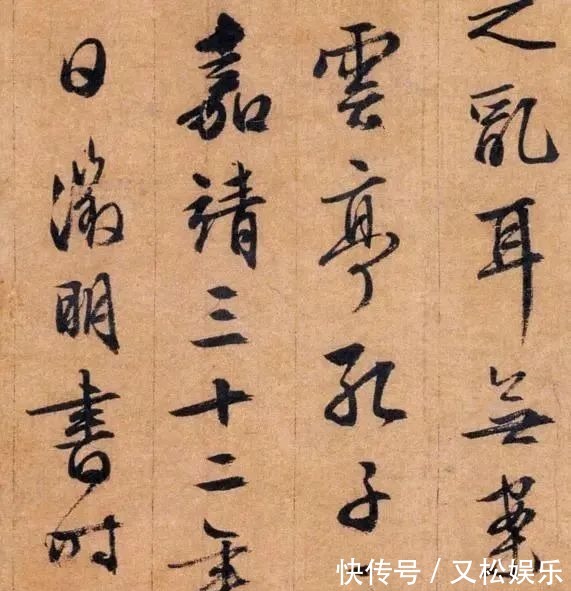 之亂耳無案
雲亭孔子
嘉靖三十二年
日徵明書时
快传号/又松娱乐